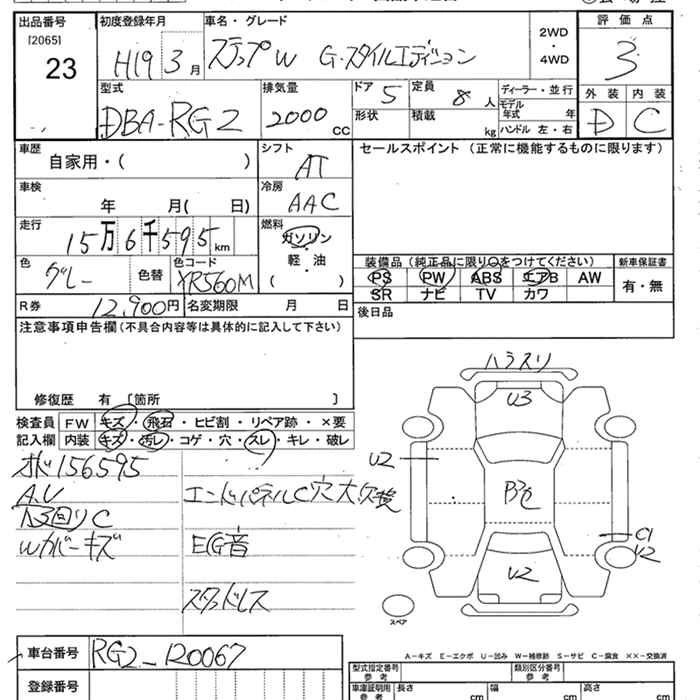 出品番号
[2065]
23
初度登録年月
H19 3月
車名・グレード
ステップW G・スタイルエディション
2WD
・
4WD
評価点
3
外装 内装
D C
型式
DBA-RG2
排気量
2000 CC
ドア 5
形状
定員 8人
積載 kg
ディーラー・並行
モデル年式 年
ハンドル 左・右
車歴
自家用・( )
シフト
AT
セールスポイント(正常に機能するものに限ります)
車検
年 月( 日)
冷房
AAC
走行
15万6千595km
燃料
ガソリン
・
軽・油
( )
色
グレー
色替
色コード
YR560M
装備品(純正品に限り○をつけてください)
PS PW ABS エアB AW
SR ナビ TV カワ
新車保証書
有・無
R券
12,900円
名変期限 月 日
後日品
注意事項申告欄(不具合内容等は具体的に記入して下さい)
修復歴 有 [箇所 ]
検査員
記入欄
FW キズ・飛石・ヒビ割・リペア跡・×要
内装 キズ・汚レ・コゲ・穴・スレ・キレ・破レ
オド156595
A.V
C
Wカバーキズ
エンドパネルC穴大
EG音
スタッドレス
U3
U2
C1
U2
U2
スペア
A-キズ E-エクボ U-凹み W-補修跡 S-サビ C-腐食 ××-交換済
車台番号
RG2-
登録番号
型式指定番号
参考
類別区分番号
参考
車庫証明用
参考
長さ cm
幅 cm
高さ cm